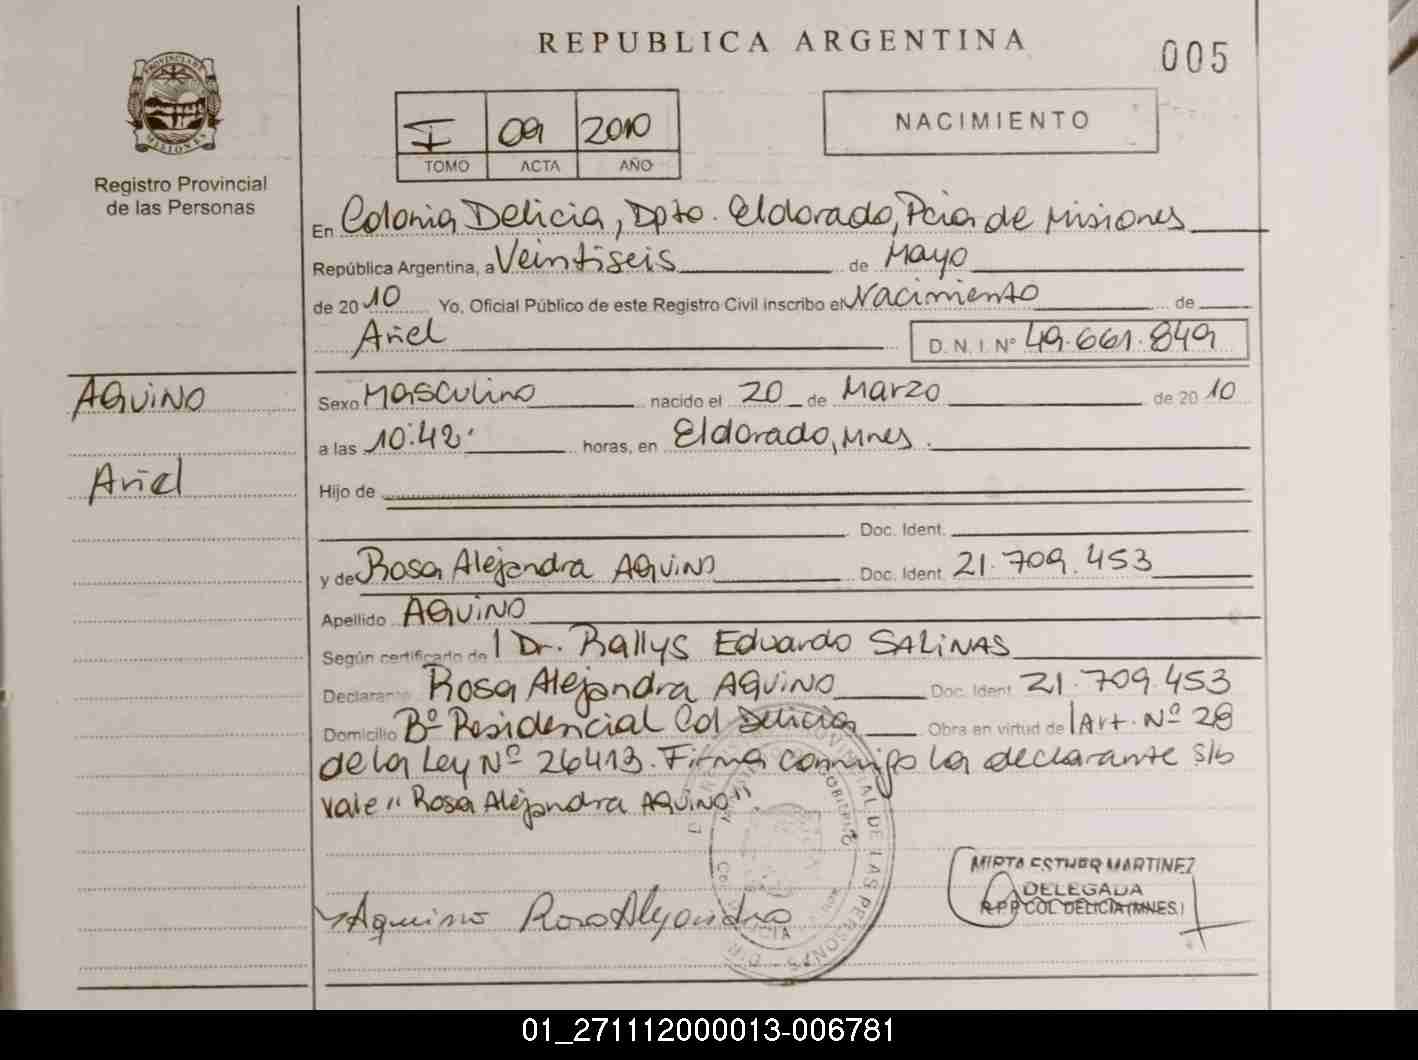 REPUBLICA ARGENTINA
005
PROVINCIA DE MISIONES
Registro Provincial
de las Personas
I 09 2010
TOMO ACTA AÑO
NACIMIENTO
En Colonia Delicia, Dpto. Eldorado, Pcia de Misiones
República Argentina, a Veintiseis de Mayo
de 2010 Yo, Oficial Público de este Registro Civil inscribo el Nacimiento de
Ariel D. N. I. N° 49.661.849
AQUINO
Ariel
Sexo Masculino nacido el 20 de Marzo de 2010
a las 10:42' horas, en Eldorado, Mnes.
Hijo de
Doc. Ident.
y de Rosa Alejandra AQUINO Doc. Ident. 21.709.453
Apellido AQUINO
Según certificado de l Dr. Rallys Eduardo SALINAS
Declarante Rosa Alejandra AQUINO Doc. Ident 21.709.453
Domicilio Bº Residencial Col Delicia Obra en virtud de l Art. Nº 28
de la Ley Nº 26413. Firma conmigo la declarante s/b
vale "Rosa Alejandra AQUINO",
Aquino Rosa Alejandra
PROVINCIAL DE LAS PERSONAS
GOBIERNO
MIRTA ESTHER MARTINEZ
DELEGADA
R.P.P COL DELICIA (MNES.)
01_271112000013-006781